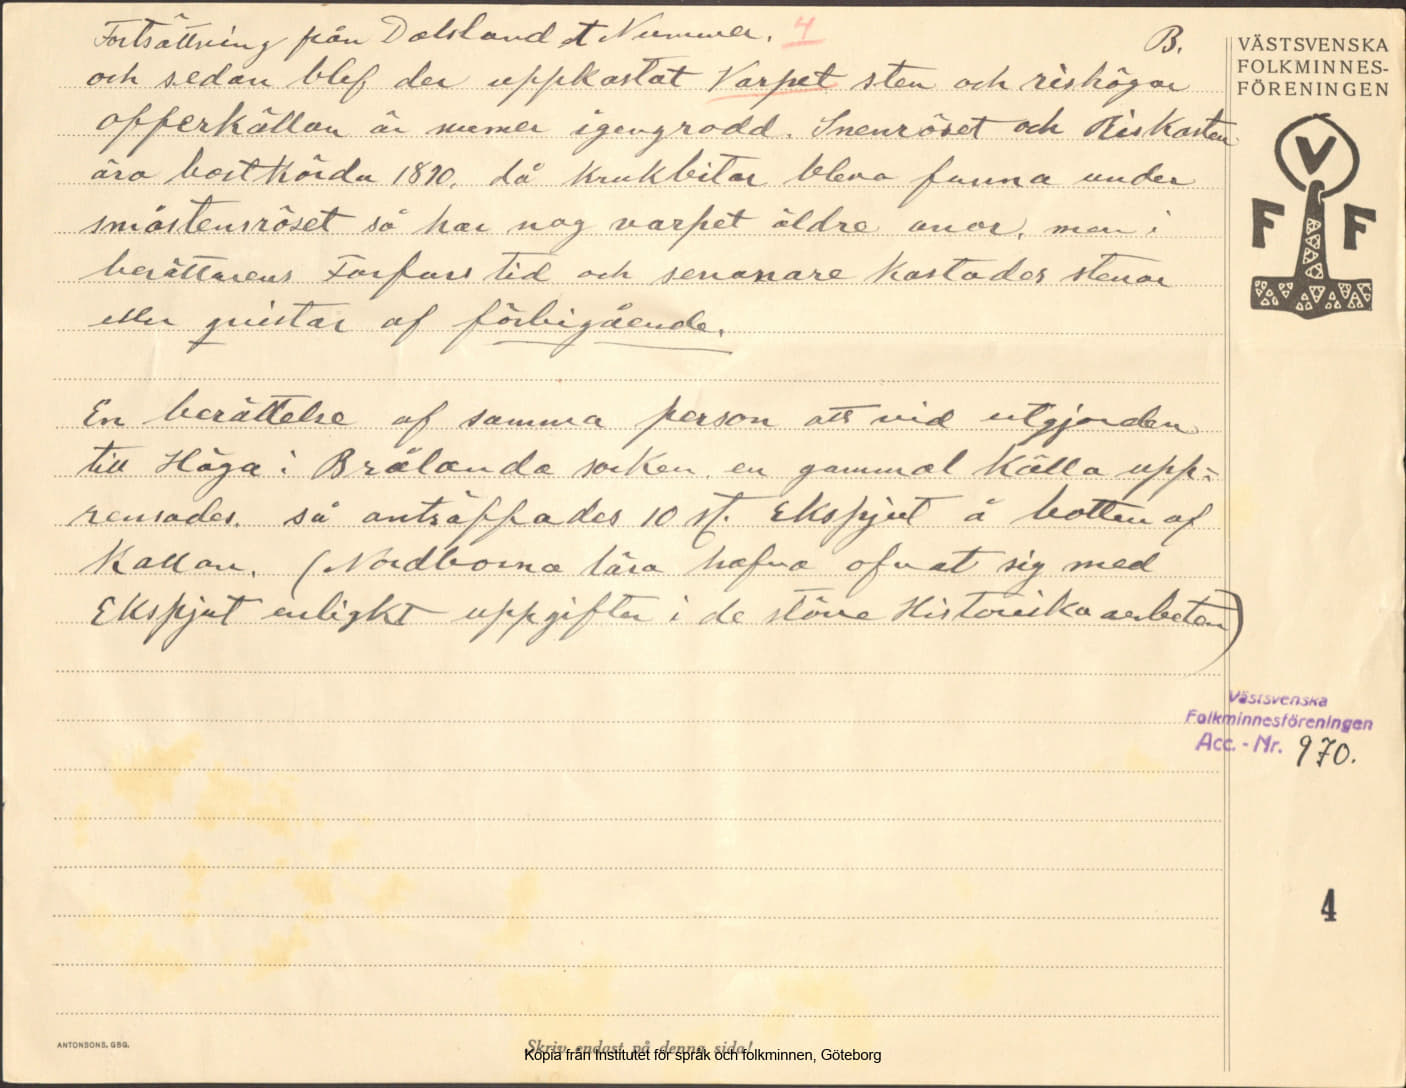 Fortsättning från Dalsland A Nummer. 4 B.
och sedan blef der uppkastat Varpet sten och rishögar
offerkällan är numer igengrodd. Snenröset och Riskasten
äro bortkörda 1890. då krukbitar bleva funna under
småstensröset så har nog varpet äldre anor, men i
berättarens Farfars tid och senanare kastades stenar
eller qvistar af förbigående.
En berättelse af samma person att vid utgjorden
till Höga i Brålanda socken en gammal källa upp-
rensades. så anträffades 10 st. Ekspjut å botten af
Kallan. (Nordborna lära hafva ofvat sig med
Ekspjut enligkt uppgifter i de större Historiska arbeten)
VÄSTSVENSKA
FOLKMINNES-
FÖRENINGEN
V
F F
Västsvenska
Folkminnesföreningen
Acc.-Nr. 970.
4
ANTONSONS, GBG.
Skriv endast på denna sida!
Kopia från Institutet för språk och folkminnen, Göteborg